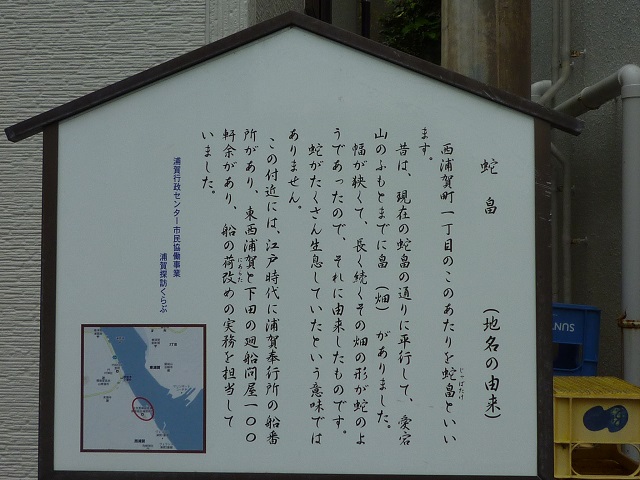 蛇畠　（地名の由来）
西浦賀町一丁目のこのあたりを蛇畠といい
じゃばたけ
ます。
昔は、現在の蛇畠の通りに平行して、愛宕
山のふもとまでに畠（畑）がありました。
幅が狭くて、長く続くその畑の形が蛇のよ
うであったので、それに由来したものです。
蛇がたくさん生息していたという意味では
ありません。
この付近には、江戸時代に浦賀奉行所の船番
所があり、東西浦賀と下田の廻船問屋一〇〇
軒余があり、船の荷改めの実務を担当して
にあらため
いました。
浦賀行政センター市民協働事業
浦賀探訪くらぶ
SUNT